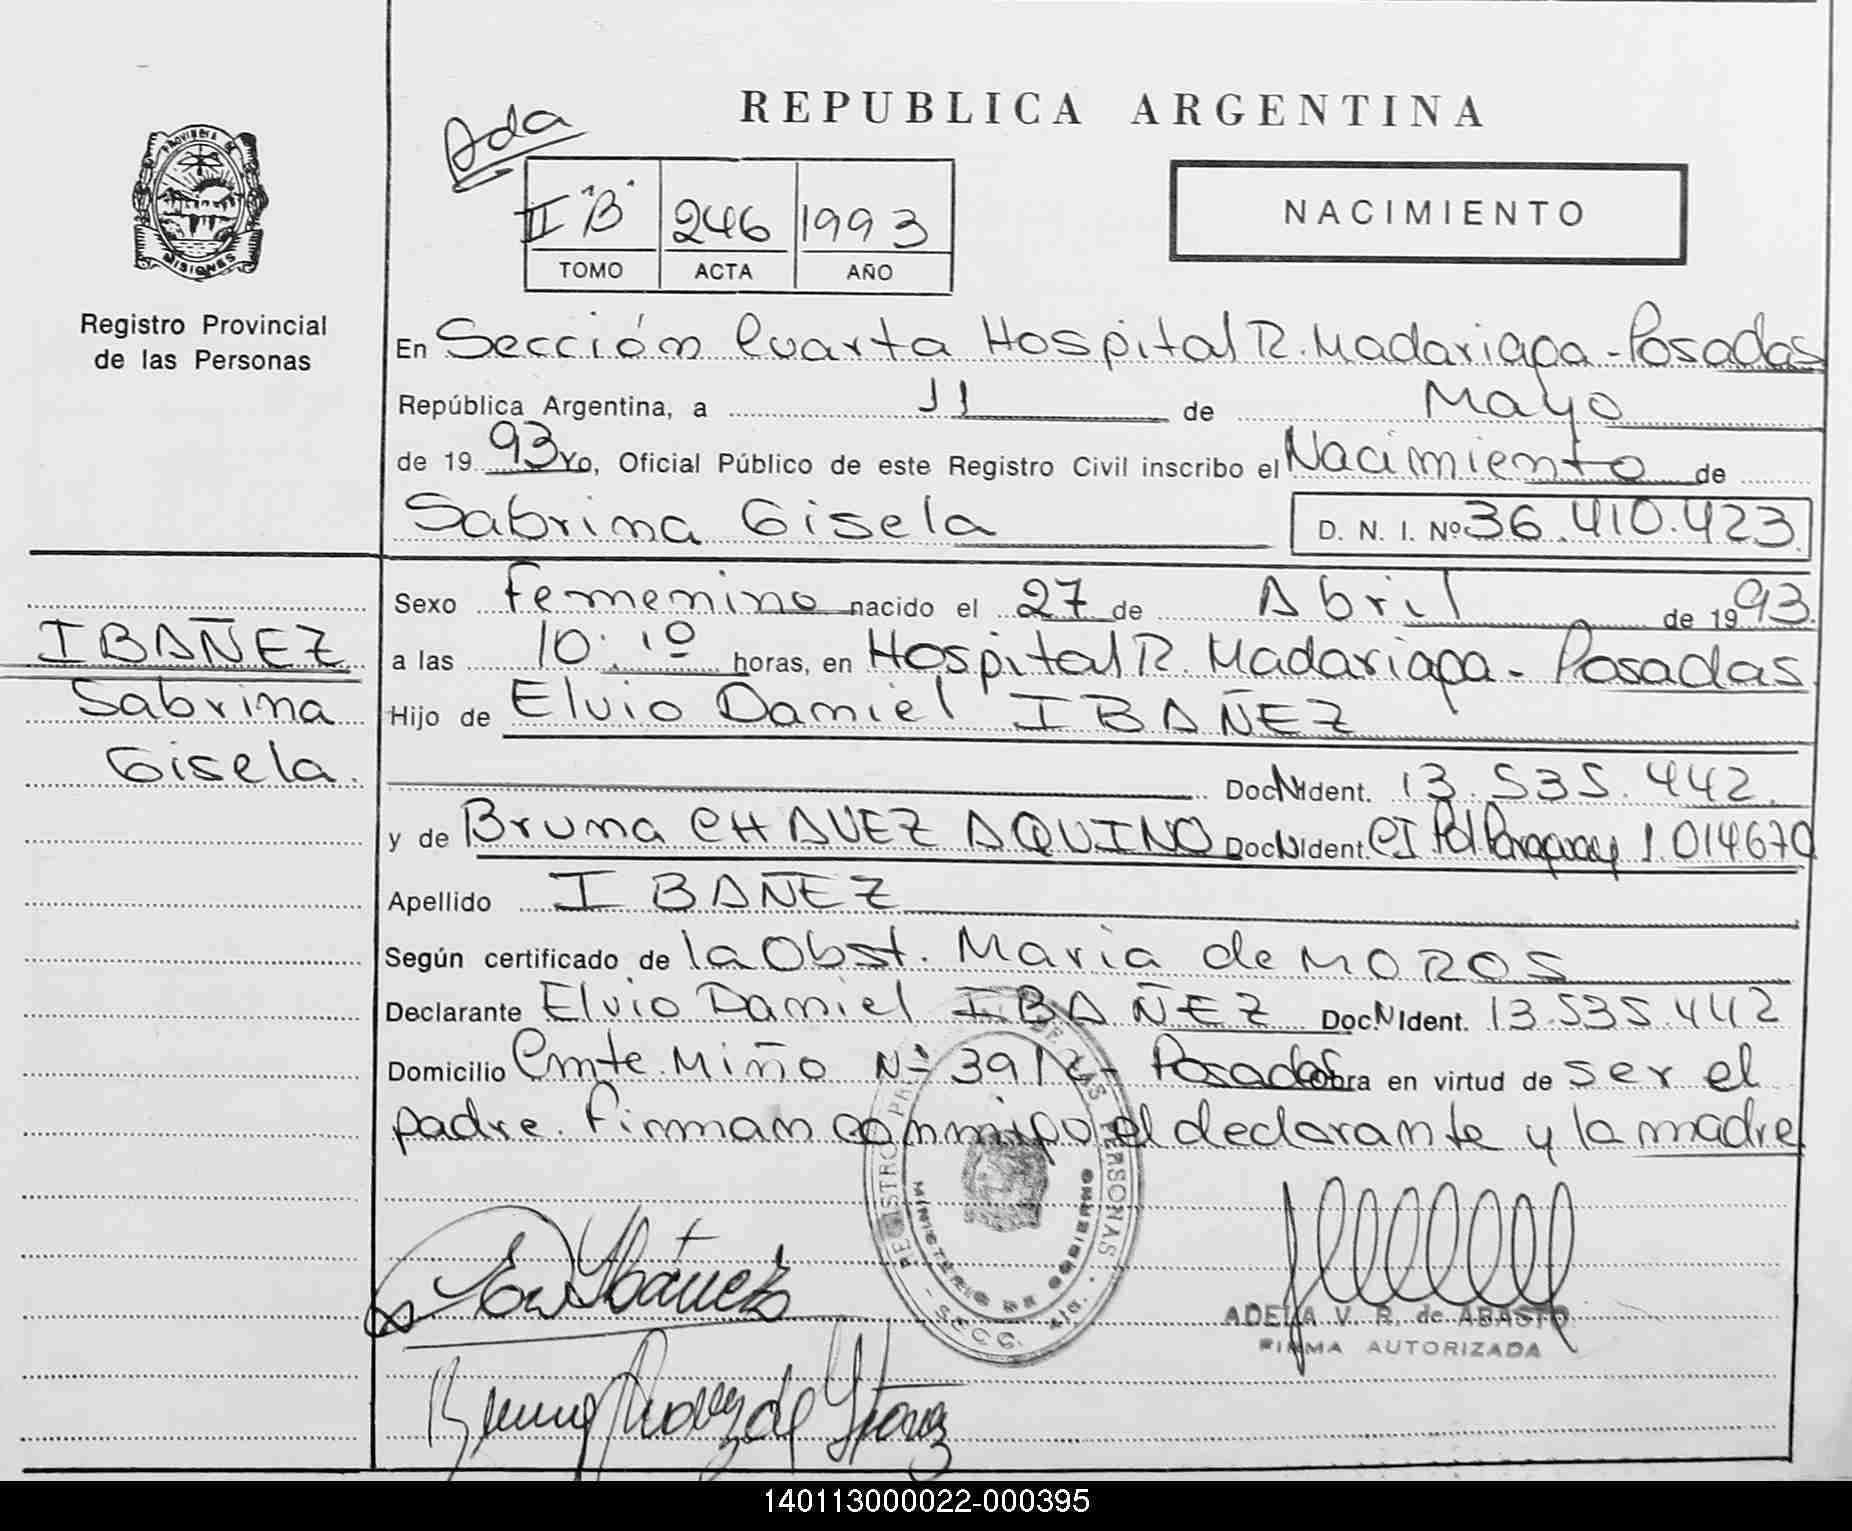 REPUBLICA ARGENTINA
Ada
PROVINCIA DE
MISIONES
II "B" 246 1993
TOMO ACTA AÑO
NACIMIENTO
Registro Provincial
de las Personas
En Sección Cuarta Hospital R. Madariaga - Posadas
República Argentina, a 11 de Mayo
de 1993 Yo, Oficial Público de este Registro Civil inscribo el Nacimiento de
Sabrina Gisela D. N. I. Nº 36.410.423
IBAÑEZ
Sabrina
Gisela.
Sexo Femenino nacido el 27 de Abril de 1993.
a las 10:10 horas, en Hospital R. Madariaga - Posadas.
Hijo de Elvio Daniel IBAÑEZ
Doc N Ident. 13.535.442.
y de Bruna CHAVEZ AQUINO Doc N Ident. CI Pol Paraguay 1.014670
Apellido IBAÑEZ
Según certificado de la Obst. Maria de MOROS
Declarante Elvio Daniel IBAÑEZ Doc. N Ident. 13.535.442
Domicilio Cmte. Miño Nº 3912 - Posadas obra en virtud de ser el
padre. Firman conmigo el declarante y la madre
REGISTRO PROVINCIAL DE LAS PERSONAS
MINISTERIO DE GOBIERNO
SECC. 4ta.
Ibáñez
ADELA V. R. de ABASTO
FIRMA AUTORIZADA
Bruna Chavez de Ibañez
140113000022-000395